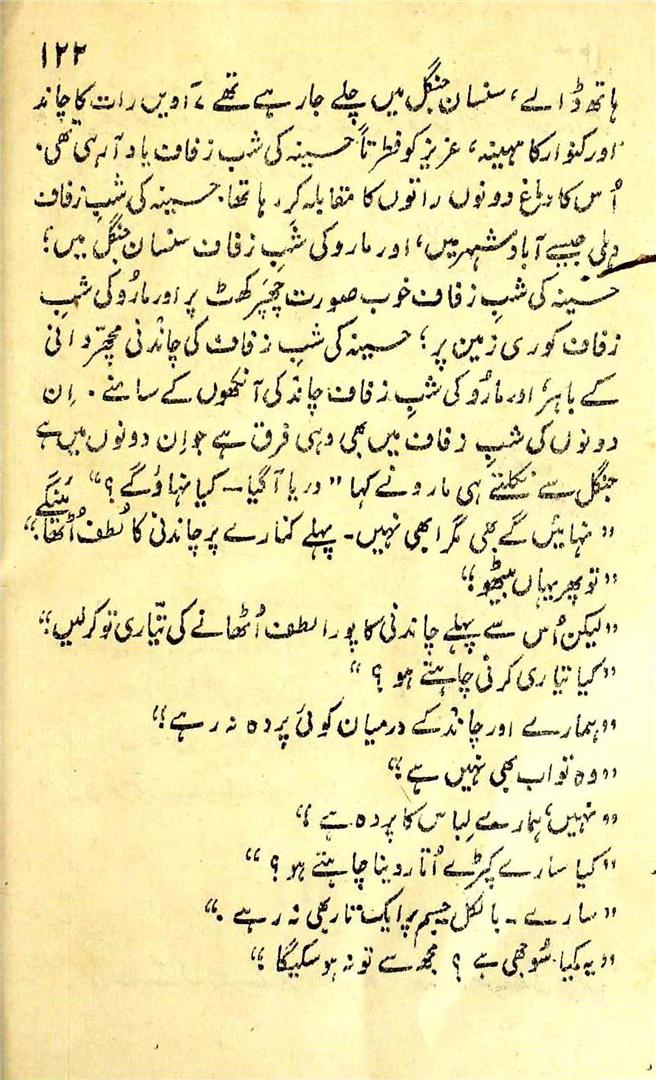 ۱۲۲
ہاتھ ڈالے، سنسان جنگل میں چلے جا رہے تھے، آویں رات کا چاند
اور کنوار کا مہینہ، عزیز کو فطرتاً حسینہ کی شب زفاف یاد آ رہی تھی۔
اُس کا دماغ دونوں راتوں کا مقابلہ کر رہا تھا۔ حسینہ کی شبِ زفاف
دہلی جیسے آباد شہر میں، اور مارو کی شبِ زفاف سنسان جنگل میں؛
حسینہ کی شبِ زفاف خوب صورت چھپر کھٹ پر اور مارُو کی شبِ
زفاف کوری زمین پر؛ حسینہ کی شبِ زفاف کی چاندنی مچھر دانی
کے باہر، اور مارُو کی شبِ زفاف چاند کی آنکھوں کے سامنے۔ اِن
دونوں کی شبِ زفاف میں بھی وہی فرق ہے جو اِن دونوں میں ہے
جنگل سے نکلتے ہی مارو نے کہا "دریا آ گیا - کیا نہاؤ گے؟"
"نہائیں گے بھی مگر ابھی نہیں - پہلے کنارے پر چاندنی کا لُطف اُٹھائینگے"
"تو پھر یہاں بیٹھو"
"لیکن اُس سے پہلے چاندنی کا پورا لطف اُٹھانے کی تیّاری تو کر لیں"
"کیا تیاری کرنی چاہتے ہو؟"
"ہمارے اور چاند کے درمیان کوئی پردہ نہ رہے"
"وہ تو اب بھی نہیں ہے"
"نہیں، ہمارے لِباس کا پردہ ہے"
"کیا سارے کپڑے اُتار دینا چاہتے ہو؟"
"سارے - بالکل جسم پر ایک تار بھی نہ رہے۔"
"یہ کیا سُوجھی ہے؟ مجھ سے تو نہ ہو سکیگا"